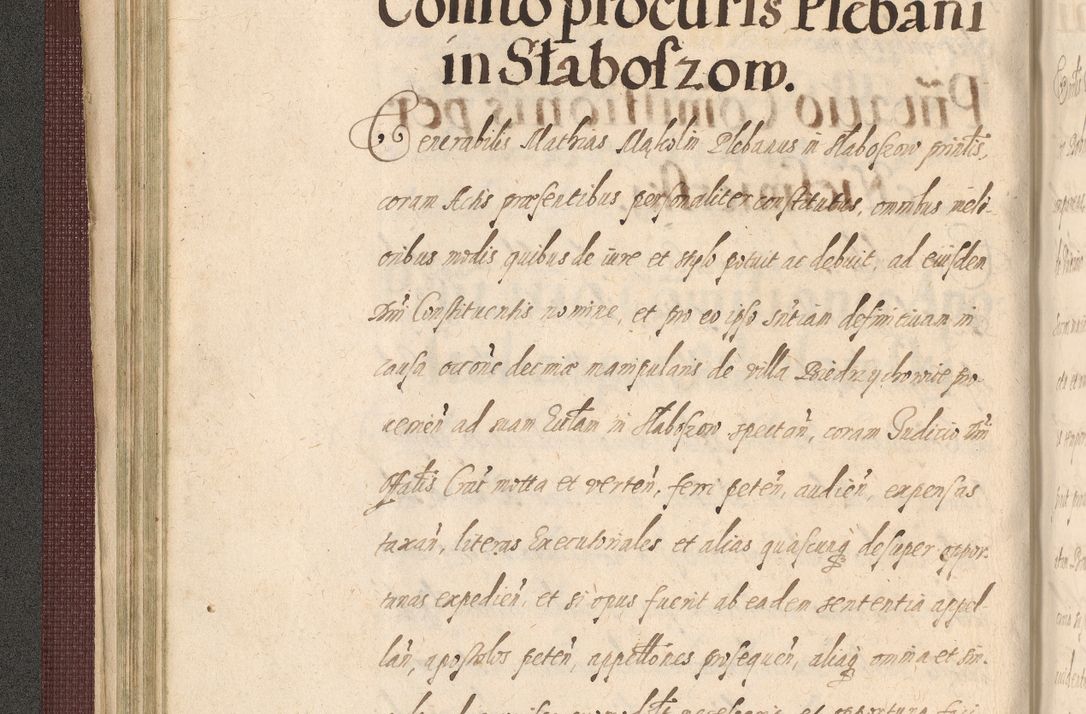 Comito procuris Plebani
in Słaboſzow.
Venerabilis Mathias Mąkolin Plebanus in Słaboſzow printis,
coram Actis præſentibus perſonaliter conſtitutus, omnibus meli-
oribus modis quibus de iure et stylo potuit ac debuit, ad eiuſdem
Dni Conſtituentis nomine, et pro eo ipſo sntiam definitiuam in
cauſa occõne decimæ manipularis de villa Biedrzychowice pro-
uenień ad suam Ecclam in Słaboſzow spectań, coram Iudicio Dni
Offalis Crac motta et verteń, ferri peteń, audień, expenſas
taxań, literas Executoriales et alias quaſcunq deſuper oppor-
tunas expedień, et si opus fuerit ab eadem sententia appel-
lań, apoſtolos peteń, appellones proſequeń, aliaq omnia et sin-